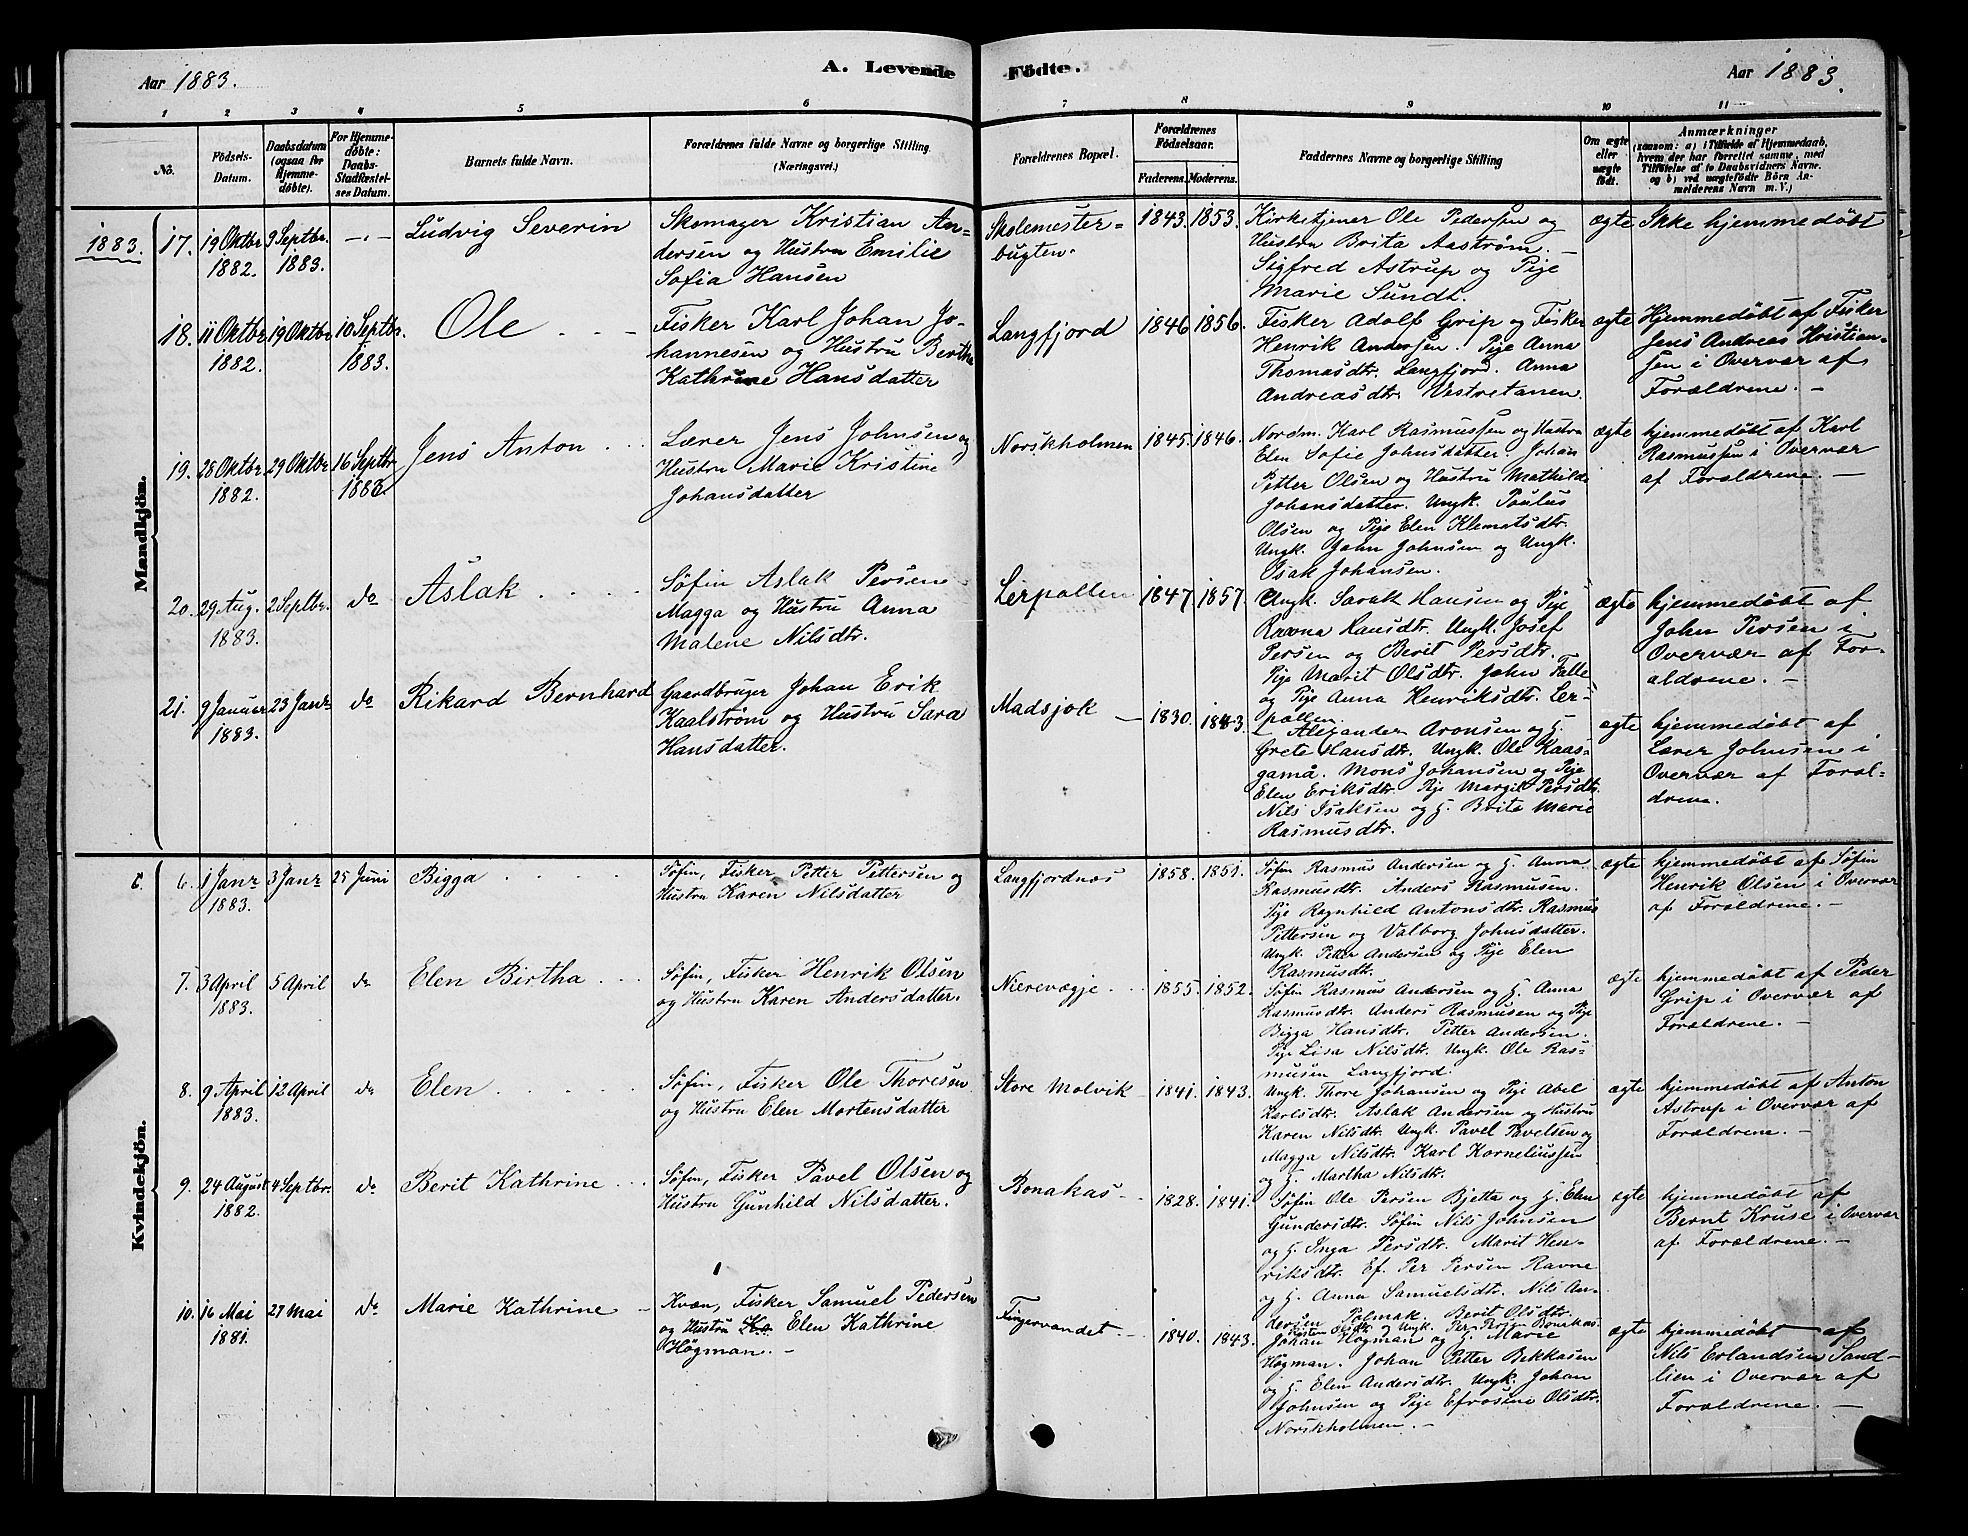 Aar 1883.
A. Levende
Födte.
Aar 1883.
1 2 3 4 5 6 7 8 9 10 11
No.
Födsels-
Datum.
Daabsdatum
(ogsaa for
Hjemme-
döbte).
For Hjemme-
döbte:
Daabs-
Stadfæstel-
ses Datum.
Barnets fulde Navn.
Forældrenes fulde Navne og borgerlige Stilling.
(Næringsvei.)
Forældrenes Bopæl.
Forældrenes
Födselsaar.
Faderens. Moderens.
Faddernes Navne og borgerlige Stilling
Om ægte
eller
uægte
født.
Anmærkninger
(saasom: a) i Tilfælde af Hjemmedaab,
hvem der har forrettet samme, med
Tilføielse af to Daabsvidners Navne,
og b) ved uægtefödte Börn An-
melderens Navn m. V.)
Mandkjön.
1883. 17. 19 Oktbr 1882. 9 Septbr. 1883. —„— Ludvig Severin
Skomager Kristian An-
dersen og Hustru Emilie
Sofia Hansen
Skolemester-
bugten.
1843. 1853.
Kirketjener Ole Pedersen og
Hustru Brita Aaström. —
Sigfred Astrup og Pige
Marie Sundt.
ægte Ikke hjemmedøbt
18. 11 Oktbr 1882. 19 Oktbr 10 Septbr. 1883. Ole
Fisker Karl Johan Jo-
hannesen og Hustru Bertha
Kathrine Hansdatter
Langfjord
1846 1856.
Fisker Adolf Grip og Fisker
Henrik Andersen. Pige Anna
Thomasdtr. Langfjord. Anna
Andreasdtr. Vestretanen.
ægte
Hjemmedøbt af Fisker
Jens Andreas Kristian-
sen i Overvær af
Forældrene. —
19. 28 Oktbr. 1882. 29 Oktbr 16 Septbr 1883. Jens Anton
Lærer Jens Johnsen og
Hustru Marie Kristine
Johansdatter
Norskholmen
1845. 1846.
Nordm. Karl Rasmussen og Hustru
Elen Sofie Johnsdatter. Johan
Petter Olsen og Hustru Mathilde
Johansdatter. Ungk. Paulus
Olsen og Pige Elen Klemetsdtr.
Ungk. John Johnsen og Ungk.
Isak Johansen.
ægte
hjemmedøbt af Karl
Rasmussen i Overvær
af Forældrene. —
20. 29 Aug. 1883. 2 Septbr. do Aslak
Søfin Aslak Persen
Magga og Hustru Anna
Malene Nilsdtr.
Lerpollen
1847. 1857.
Ungk. Sarak Hansen og Pige
Ravna Hansdtr. Ungk. Josef
Persen og Berit Persdtr.
Pige Marit Olsdtr. John Falle
og Pige Anna Henriksdtr. Ler-
pollen.
ægte
hjemmedøbt af
John Persen i
Overvær af For-
ældrene. —
21. 9 Januar 1883. 23 Janr do Rikard Bernhard
Gaardbruger Johan Erik
Kaalstrøm og Hustru Sara
Hansdatter.
Madsjok —
1830. 1843.
Alexander Aronsen og H.
Grete Hansdtr. Ungk. Ole Kaas-
gamå. Mons Johansen og Pige
Elen Eriksdtr. Pige Margit Persdtr.
Nils Isaksen og H. Brita Marie
Rasmusdtr.
ægte
hjemmedøbt af
Lærer Johnsen i
Overvær af Foræl-
drene.
Kvindekjön.
6. 1 Janr 1883. 3 Janr 25 Juni Bigga
Søfin, Fisker Petter Pettersen og
Hustru Karen Nilsdatter
Langfjordnæs
1858. 1851.
Søfin Rasmus Andersen og H. Anna
Rasmusdtr. Anders Rasmusen.
Pige Ragnhild Antonsdtr. Rasmus
Pettersen og Valborg Johnsdatter.
Ungk. Petter Andersen og Pige Elen
Rasmusdtr.
ægte
hjemmedøbt af Søfin
Henrik Olsen i Overvær
af Forældrene. —
7. 3 April 1883. 5 April do Elen Birtha
Søfin, Fisker Henrik Olsen
og Hustru Karen Andersdatter.
Nierevægje
1855. 1852.
Søfin Rasmus Andersen og H. Anna
Rasmusdtr. Anders Rasmusen og Pige
Bigga Hansdtr. Petter Andersen.
Pige Lisa Nilsdtr. Ungk. Ole Ras-
musen Langfjord.
ægte
hjemmedøbt af Peder
Grip i Overvær af
Forældrene. —
8. 9 April 1883. 12 April do Elen
Søfin, Fisker Ole Thoresen
og Hustru Elen Mortensdatter
Store Molvik
1841. 1843.
Ungk. Thore Johansen og Pige Abel
Karlsdtr. Aslak Andersen og Hustru
Karen Nilsdtr. Ungk. Pavel Pavelsen og
Magga Nilsdtr. Karl Korneliussen
og H. Martha Nilsdtr.
ægte
hjemmedøbt af Anton
Astrup i Overvær af
Forældrene. —
9. 24 August 1882. 4 Septbr. do Berit Kathrine
Søfin, Fisker Pavel Olsen og
Hustru Gunhild Nilsdatter.
Bonakas
1828. 1841.
Søfin Ole Persen Bjetta og H. Elen
Gundersdtr. Søfin Nils Johnsen
og H. Inga Persdtr. Marit Hen-
riksdtr. Ef. Per Persen Ravne
og H. Anna Samuelsdtr. Nils An-
dersen Polmak. Berit Olsdtr.
og Ungk. Per Bonakas.
ægte
hjemmedøbt af
Bernt Kruse i Overvær
af Forældrene. —
10. 16 Mai 1881. 27 Mai do Marie Kathrine
Kvæn, Fisker Samuel Pedersen
og Hustru Elen Kathrine
Högman. —
Fingervandet.
1840. 1843.
Johan Högman og H. Marie
Högman. Johan Petter Bekkasen
og H. Elen Andersdtr. Ungk. Johan
Johnsen og Pige Efrosine Olsdtr.
Norskholmen. —
ægte
hjemmedøbt af
Nils Erlandsen Sand-
lien i Overvær af
Forældrene. —